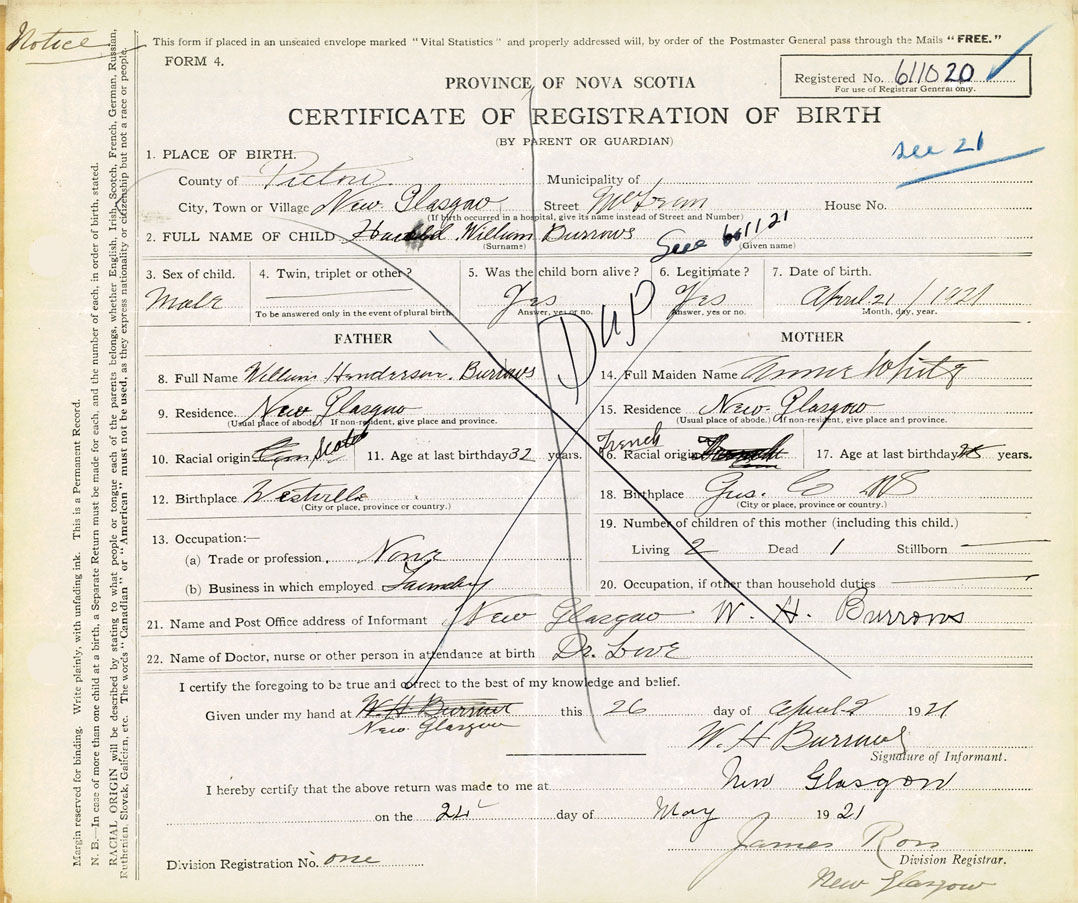 Notice
This form if placed in an unsealed envelope marked "Vital Statistics" and properly addressed will, by order of the Postmaster General pass through the Mails "FREE."
FORM 4.
Registered No. 611020
For use of Registrar General only.
PROVINCE OF NOVA SCOTIA
CERTIFICATE OF REGISTRATION OF BIRTH
(BY PARENT OR GUARDIAN)
see 21
1. PLACE OF BIRTH.
County of Pictou Municipality of
City, Town or Village New Glasgow Street House No.
(If birth occurred in a hospital, give its name instead of Street and Number)
2. FULL NAME OF CHILD Harold William Burrows See 21
(Surname) (Given name)
3. Sex of child. 4. Twin, triplet or other? 5. Was the child born alive? 6. Legitimate? 7. Date of birth.
Male Yes Yes April 21 / 1921
To be answered only in the event of plural birth. Answer, yes or no. Answer, yes or no. Month, day, year.
DUP
FATHER MOTHER
8. Full Name William Henderson Burrows 14. Full Maiden Name Annie White
9. Residence. New Glasgow 15. Residence New Glasgow
(Usual place of abode.) If non-resident, give place and province. (Usual place of abode.) If non-resident, give place and province.
10. Racial origin Scotch 11. Age at last birthday 32 years. 16. Racial origin French 17. Age at last birthday years.
12. Birthplace Westville 18. Birthplace Gus. Co NS
(City or place, province or country.) (City or place, province or country.)
13. Occupation:— 19. Number of children of this mother (including this child.)
(a) Trade or profession, None Living 2 Dead 1 Stillborn
(b) Business in which employed 20. Occupation, if other than household duties
21. Name and Post Office address of Informant New Glasgow W. H. Burrows
22. Name of Doctor, nurse or other person in attendance at birth Dr. Love
I certify the foregoing to be true and correct to the best of my knowledge and belief.
Given under my hand at W. H. Burrows this 26 day of April 1921
New Glasgow
W. H Burrows
Signature of Informant.
I hereby certify that the above return was made to me at New Glasgow
on the 24 day of May 1921
James Ross
Division Registrar.
Division Registration No. one
New Glasgow
Margin reserved for binding. Write plainly, with unfading ink. This is a Permanent Record.
N. B.—In case of more than one child at a birth, a Separate Return must be made for each, and the number of each, in order of birth, stated.
RACIAL ORIGIN will be described by stating to what people or tongue each of the parents belongs, whether English, Irish, Scotch, French, German, Russian,
Ruthenian, Slovak, Galician, etc. The words "Canadian" or "American" must not be used, as they express nationality or citizenship but not a race or people.